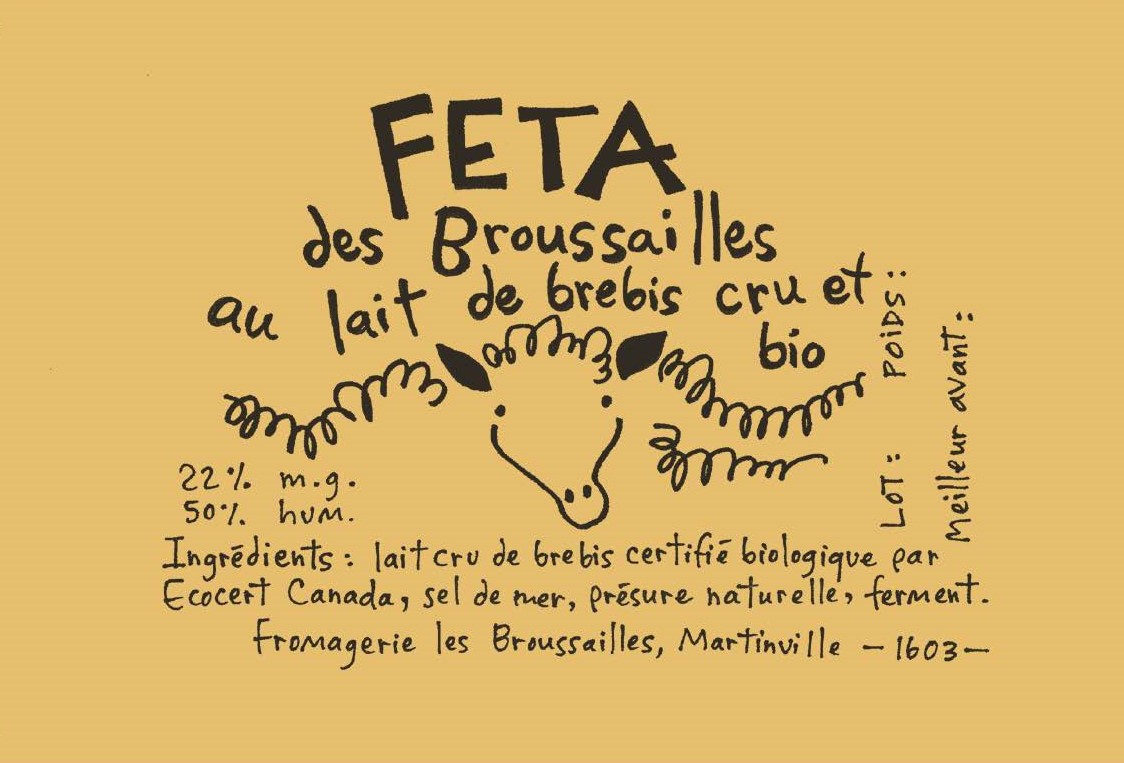 FETA
des Broussailles
au lait de brebis cru et
bio
POIDS:
LOT:
Meilleur avant:
22% m.g.
50% hum.
Ingrédients: lait cru de brebis certifié biologique par
Ecocert Canada, sel de mer, présure naturelle, ferment.
Fromagerie les Broussailles, Martinville - 1603 -